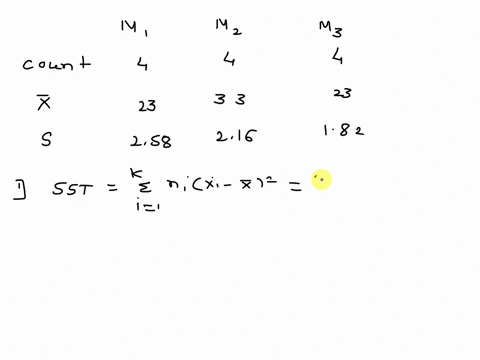 M1 M2 M3
count 4 4 4
X̄ 23 33 23
S 2.58 2.16 1.82
1] SST = K Σ i=1 ni(xi - x̄)² =